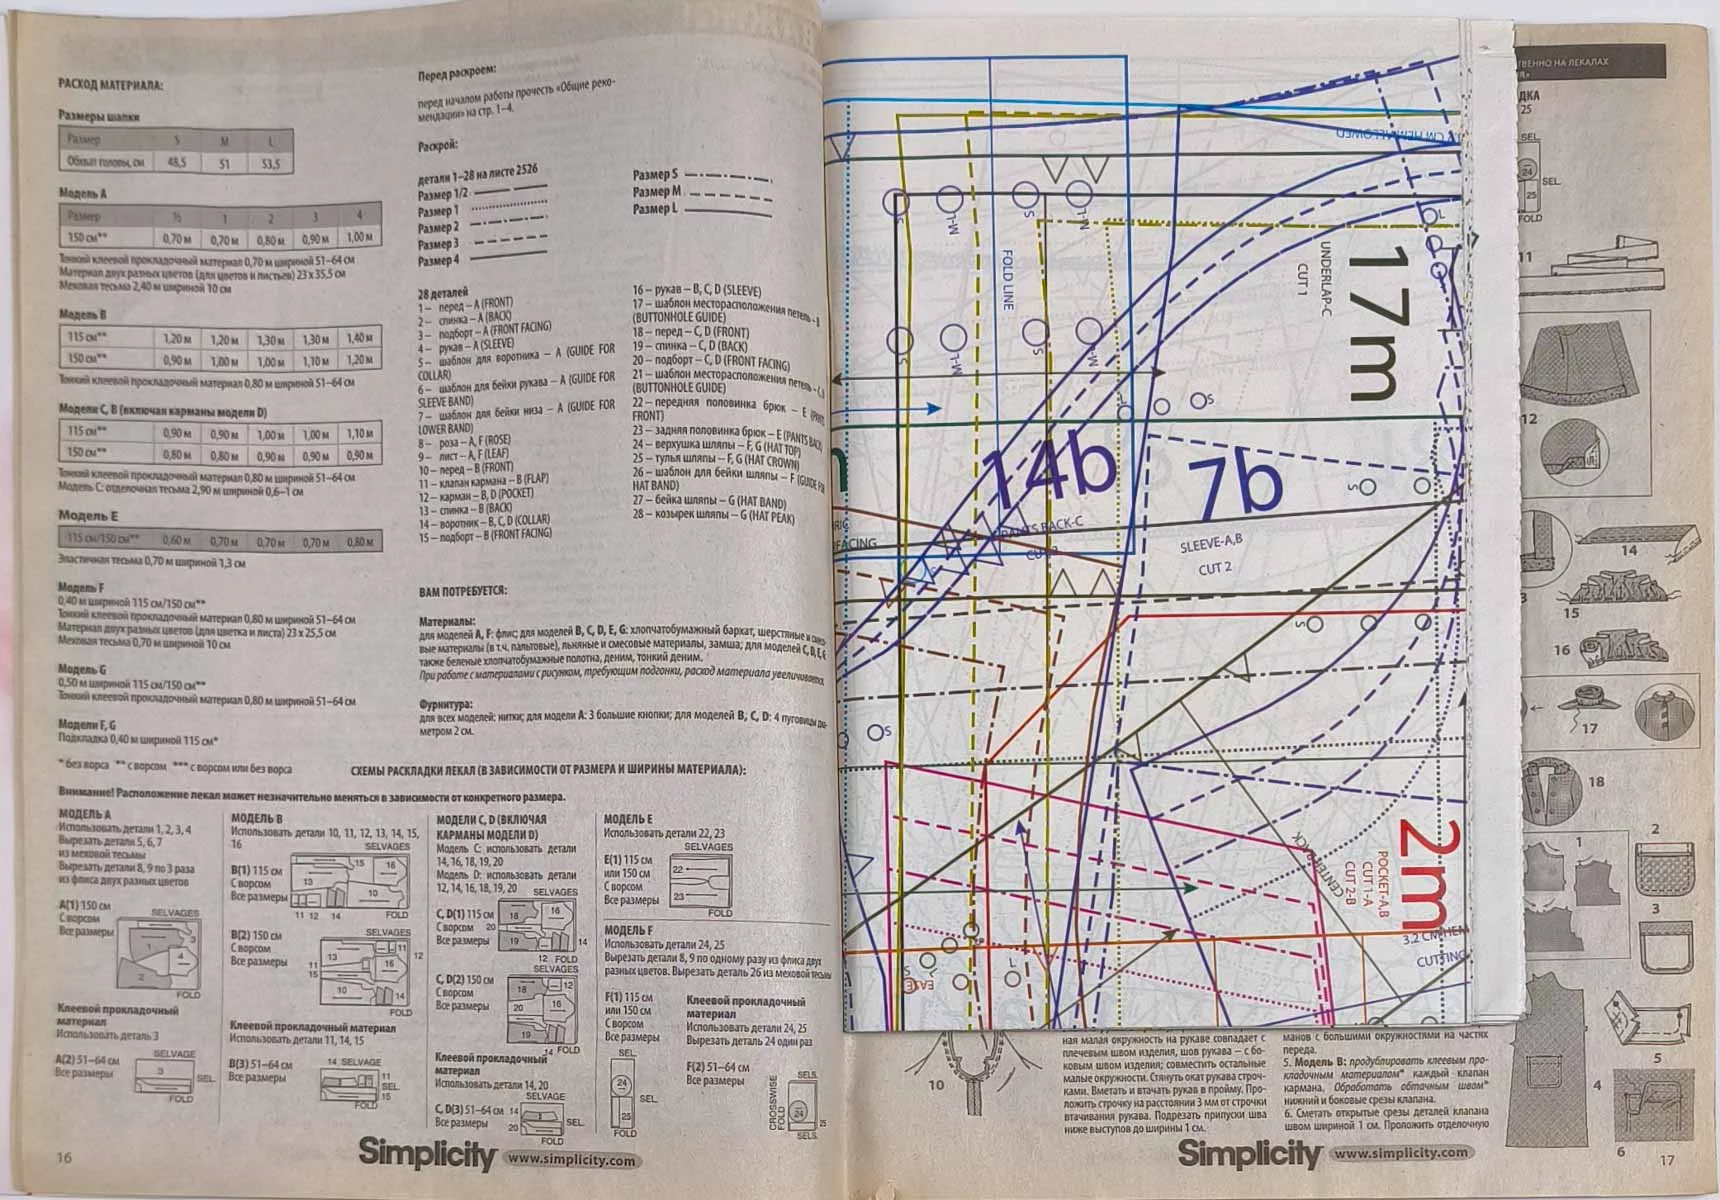 РАСХОД МАТЕРИАЛА:
Размеры шапки
Размер S M L
Обхват головы, см 48,5 51 53,5
Модель А
Размер ½ 1 2 3 4
150 см** 0,70 м 0,70 м 0,80 м 0,90 м 1,00 м
Тонкий клеевой прокладочный материал 0,70 м шириной 51–64 см
Материал двух разных цветов (для цветов и листьев) 23 x 35,5 см
Меховая тесьма 2,40 м шириной 10 см
Модель В
115 см** 1,20 м 1,20 м 1,30 м 1,30 м 1,40 м
150 см** 0,90 м 1,00 м 1,00 м 1,10 м 1,20 м
Тонкий клеевой прокладочный материал 0,80 м шириной 51–64 см
Модели C, В (включая карманы модели D)
115 см** 0,90 м 0,90 м 1,00 м 1,00 м 1,10 м
150 см** 0,80 м 0,80 м 0,90 м 0,90 м 0,90 м
Тонкий клеевой прокладочный материал 0,80 м шириной 51–64 см
Модель C: отделочная тесьма 2,90 м шириной 0,6–1 см
Модель Е
115 см/150 см** 0,60 м 0,70 м 0,70 м 0,70 м 0,80 м
Эластичная тесьма 0,70 м шириной 1,3 см
Модель F
0,40 м шириной 115 см/150 см**
Тонкий клеевой прокладочный материал 0,80 м шириной 51–64 см
Материал двух разных цветов (для цветка и листа) 23 x 25,5 см
Меховая тесьма 0,70 м шириной 10 см
Модель G
0,50 м шириной 115 см/150 см**
Тонкий клеевой прокладочный материал 0,80 м шириной 51–64 см
Модели F, G
Подкладка 0,40 м шириной 115 см*
* без ворса ** с ворсом *** с ворсом или без ворса
Перед раскроем:
перед началом работы прочесть «Общие реко-
мендации» на стр. 1–4.
Раскрой:
детали 1–28 на листе 2526
Размер 1/2
Размер 1
Размер 2
Размер 3
Размер 4
Размер S
Размер M
Размер L
28 деталей
1 – перед – A (FRONT)
2 – спинка – A (BACK)
3 – подборт – A (FRONT FACING)
4 – рукав – A (SLEEVE)
5 – шаблон для воротника – A (GUIDE FOR
COLLAR)
6 – шаблон для бейки рукава – A (GUIDE FOR
SLEEVE BAND)
7 – шаблон для бейки низа – A (GUIDE FOR
LOWER BAND)
8 – роза – A, F (ROSE)
9 – лист – A, F (LEAF)
10 – перед – B (FRONT)
11 – клапан кармана – B (FLAP)
12 – карман – B, D (POCKET)
13 – спинка – B (BACK)
14 – воротник – B, C, D (COLLAR)
15 – подборт – B (FRONT FACING)
16 – рукав – B, C, D (SLEEVE)
17 – шаблон месторасположения петель – B
(BUTTONHOLE GUIDE)
18 – перед – C, D (FRONT)
19 – спинка – C, D (BACK)
20 – подборт – C, D (FRONT FACING)
21 – шаблон месторасположения петель – C,
(BUTTONHOLE GUIDE)
22 – передняя половинка брюк – E (PANTS
FRONT)
23 – задняя половинка брюк – E (PANTS BACK)
24 – верхушка шляпы – F, G (HAT TOP)
25 – тулья шляпы – F, G (HAT CROWN)
26 – шаблон для бейки шляпы – F (GUIDE FOR
HAT BAND)
27 – бейка шляпы – G (HAT BAND)
28 – козырек шляпы – G (HAT PEAK)
ВАМ ПОТРЕБУЕТСЯ:
Материалы:
для моделей A, F: флис; для моделей B, C, D, E, G: хлопчатобумажный бархат, шерстяные и смесо-
вые материалы (в т.ч. пальтовые), льняные и смесовые материалы, замша; для моделей C, D, E, G
также беленые хлопчатобумажные полотна, деним, тонкий деним.
При работе с материалами с рисунком, требующим подгонки, расход материала увеличивается.
Фурнитура:
для всех моделей: нитки; для модели A: 3 большие кнопки; для моделей B, C, D: 4 пуговицы диа-
метром 2 см.
СХЕМЫ РАСКЛАДКИ ЛЕКАЛ (В ЗАВИСИМОСТИ ОТ РАЗМЕРА И ШИРИНЫ МАТЕРИАЛА):
Внимание! Расположение лекал может незначительно меняться в зависимости от конкретного размера.
МОДЕЛЬ А
Использовать детали 1, 2, 3, 4
Вырезать детали 5, 6, 7
из меховой тесьмы
Вырезать детали 8, 9 по 3 раза
из флиса двух разных цветов
A(1) 150 см
С ворсом
Все размеры
SELVAGES
1 3 4 2
FOLD
Клеевой прокладочный
материал
Использовать деталь 3
A(2) 51–64 см
Все размеры
SELVAGE
3
SEL.
FOLD
МОДЕЛЬ В
Использовать детали 10, 11, 12, 13, 14, 15,
16
SELVAGES
B(1) 115 см
С ворсом
Все размеры
15 16 13 10
11 12 14 FOLD
B(2) 150 см
С ворсом
Все размеры
SELVAGES
11 13 16 12
11
15
10 14
FOLD
Клеевой прокладочный материал
Использовать 11, 14, 15
B(3) 51–64 см
Все размеры
14 SELVAGE
11
SEL.
15
FOLD
МОДЕЛИ C, D (ВКЛЮЧАЯ
КАРМАНЫ МОДЕЛИ D)
Модель C: использовать детали
14, 16, 18, 19, 20
Модель D: использовать детали
12, 14, 16, 18, 19, 20
SELVAGES
C, D(1) 115 см
С ворсом
Все размеры
18 16
20
19 14
12 FOLD
SELVAGES
C, D(2) 150 см
С ворсом
Все размеры
18 12
20 16
19
14 FOLD
Клеевой прокладочный
материал
Использовать 14, 20
SELVAGE
C, D(3) 51–64 см
Все размеры
14
20
SEL.
FOLD
МОДЕЛЬ E
Использовать детали 22, 23
SELVAGES
E(1) 115 см
или 150 см
С ворсом
Все размеры
22
23
FOLD
МОДЕЛЬ F
Использовать детали 24, 25
Вырезать детали 8, 9 по одному разу из флиса двух
разных цветов. Вырезать деталь 26 из меховой тесьмы
F(1) 115 см
или 150 см
С ворсом
Все размеры
SEL.
24
SEL.
25
FOLD
Клеевой прокладочный
материал
Использовать 24, 25
Вырезать деталь 24 один раз
F(2) 51–64 см
Все размеры
SELS.
CROSSWISE
FOLD
24
25
SELS.
16
Simplicity www.simplicity.com
S
L-M
S
L-M
S
L-M
S
L-M
FOLD LINE
UNDERLAP-C
CUT 1
17m
L
S
14b
PANTS BACK-C
CUT 2
FACING
7b
SLEEVE-A,B
CUT 2
S
S
S
2m
POCKET-A,B
CUT 1-A
CUT 2-B
CENTER BACK
3.2 CM HEM
CUTTING
S
L
L
EASE
ТВЕННО НА ЛЕКАЛАХ
ДКА
25
SEL.
24
SEL.
25
FOLD
11
12
14
15
16
17
18
1
2
3
4
5
6
10
ная малая окружность на рукаве совпадает с
плечевым швом изделия, шов рукава – с бо-
ковым швом изделия; совместить остальные
малые окружности. Стянуть окат рукава строч-
ками. Вметать и втачать рукав в пройму. Про-
ложить строчку на расстоянии 3 мм от строчки
втачивания рукава. Подрезать припуски шва
ниже выступов до ширины 1 см.
манов с большими окружностями на частях
переда.
5. Модель В: продублировать клеевым про-
кладочным материалом* каждый клапан
кармана. Обработать обтачным швом*
нижний и боковые срезы клапана.
6. Сметать открытые срезы деталей клапана
швом шириной 1 см. Проложить отделочную
Simplicity www.simplicity.com
17